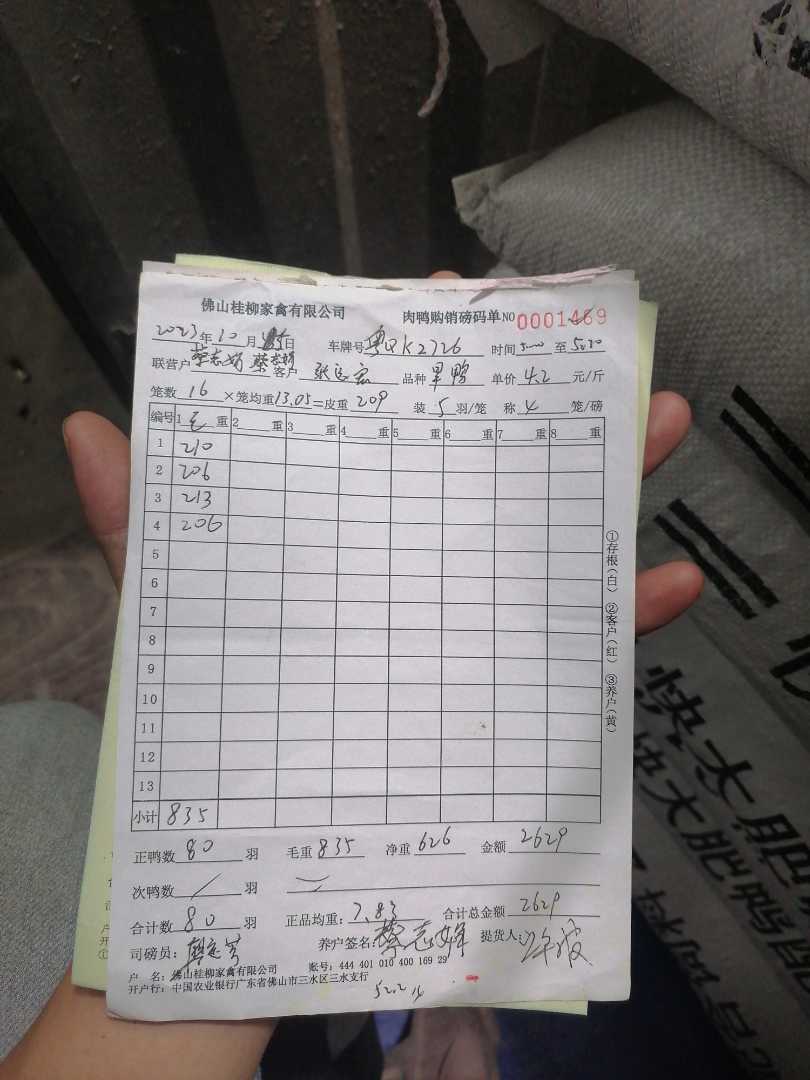 佛山桂柳家禽有限公司 肉鸭购销磅码单 NO 0001469
2023年10月 日 车牌号 粤QK2726 时间 至
联营户 蔡志娟 客户 品种 单价 4.2 元/斤
笼数 16 ×笼均重 13.05 =皮重 209 装 5 羽/笼 称 4 笼/磅
编号 1 毛 重 2 重 3 重 4 重 5 重 6 重 7 重 8 重
1 210
2 206
3 213
4 206
5
6
7
8
9
10
11
12
13
小计 835
正鸭数 80 羽 毛重 835 净重 626 金额 2629
次鸭数 / 羽
合计数 80 羽 正品均重: 7.83 合计总金额 2629
司磅员: 养户签名: 蔡志娟 提货人:
户 名: 佛山桂柳家禽有限公司 账号: 444 401 010 400 169 29
开户行: 中国农业银行广东省佛山市三水区三水支行
①存根(白) ②客户(红) ③养户(黄)
快大肥鸭
快大肥鸭配